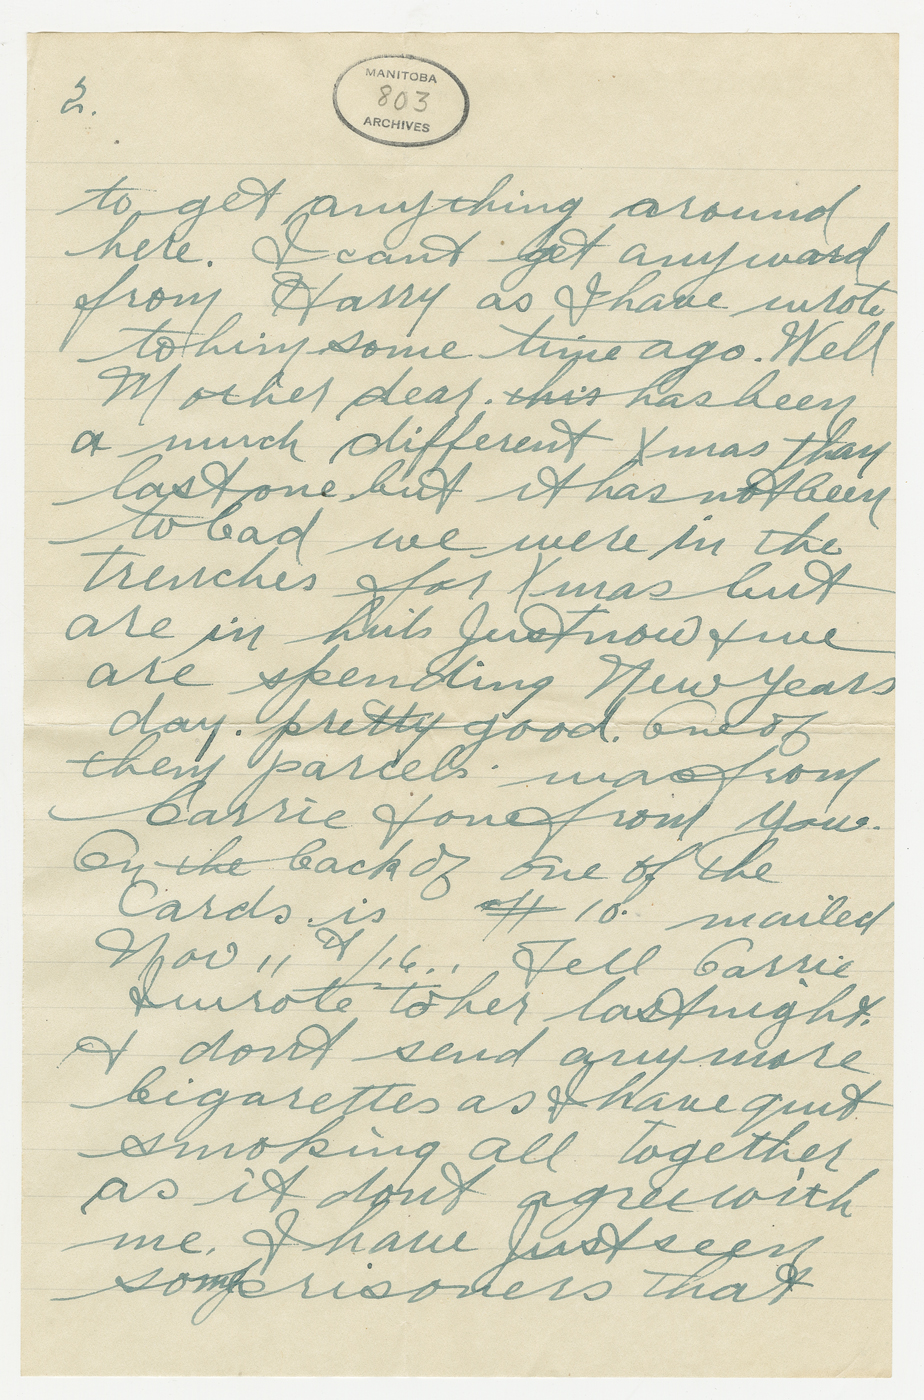 2.
MANITOBA
803
ARCHIVES
to get anything around
here. I cant get any word
from Harry as I have wrote
to him some time ago. Well
Mother dear. this has been
a much different Xmas than
last one but it has not been
to bad we were in the
trenches for Xmas but
are in huts Just now & we
are spending New Years
day. pretty good. One of
them parcels was from
Carrie & one from you.
On the back of one of the
Cards. is # 10. mailed
Nov 11th/16.. Tell Carrie
I wrote to her last night.
& dont send any more
Cigarettes as I have quit
smoking all together
as it dont agree with
me. I have Just seen
some prisoners that